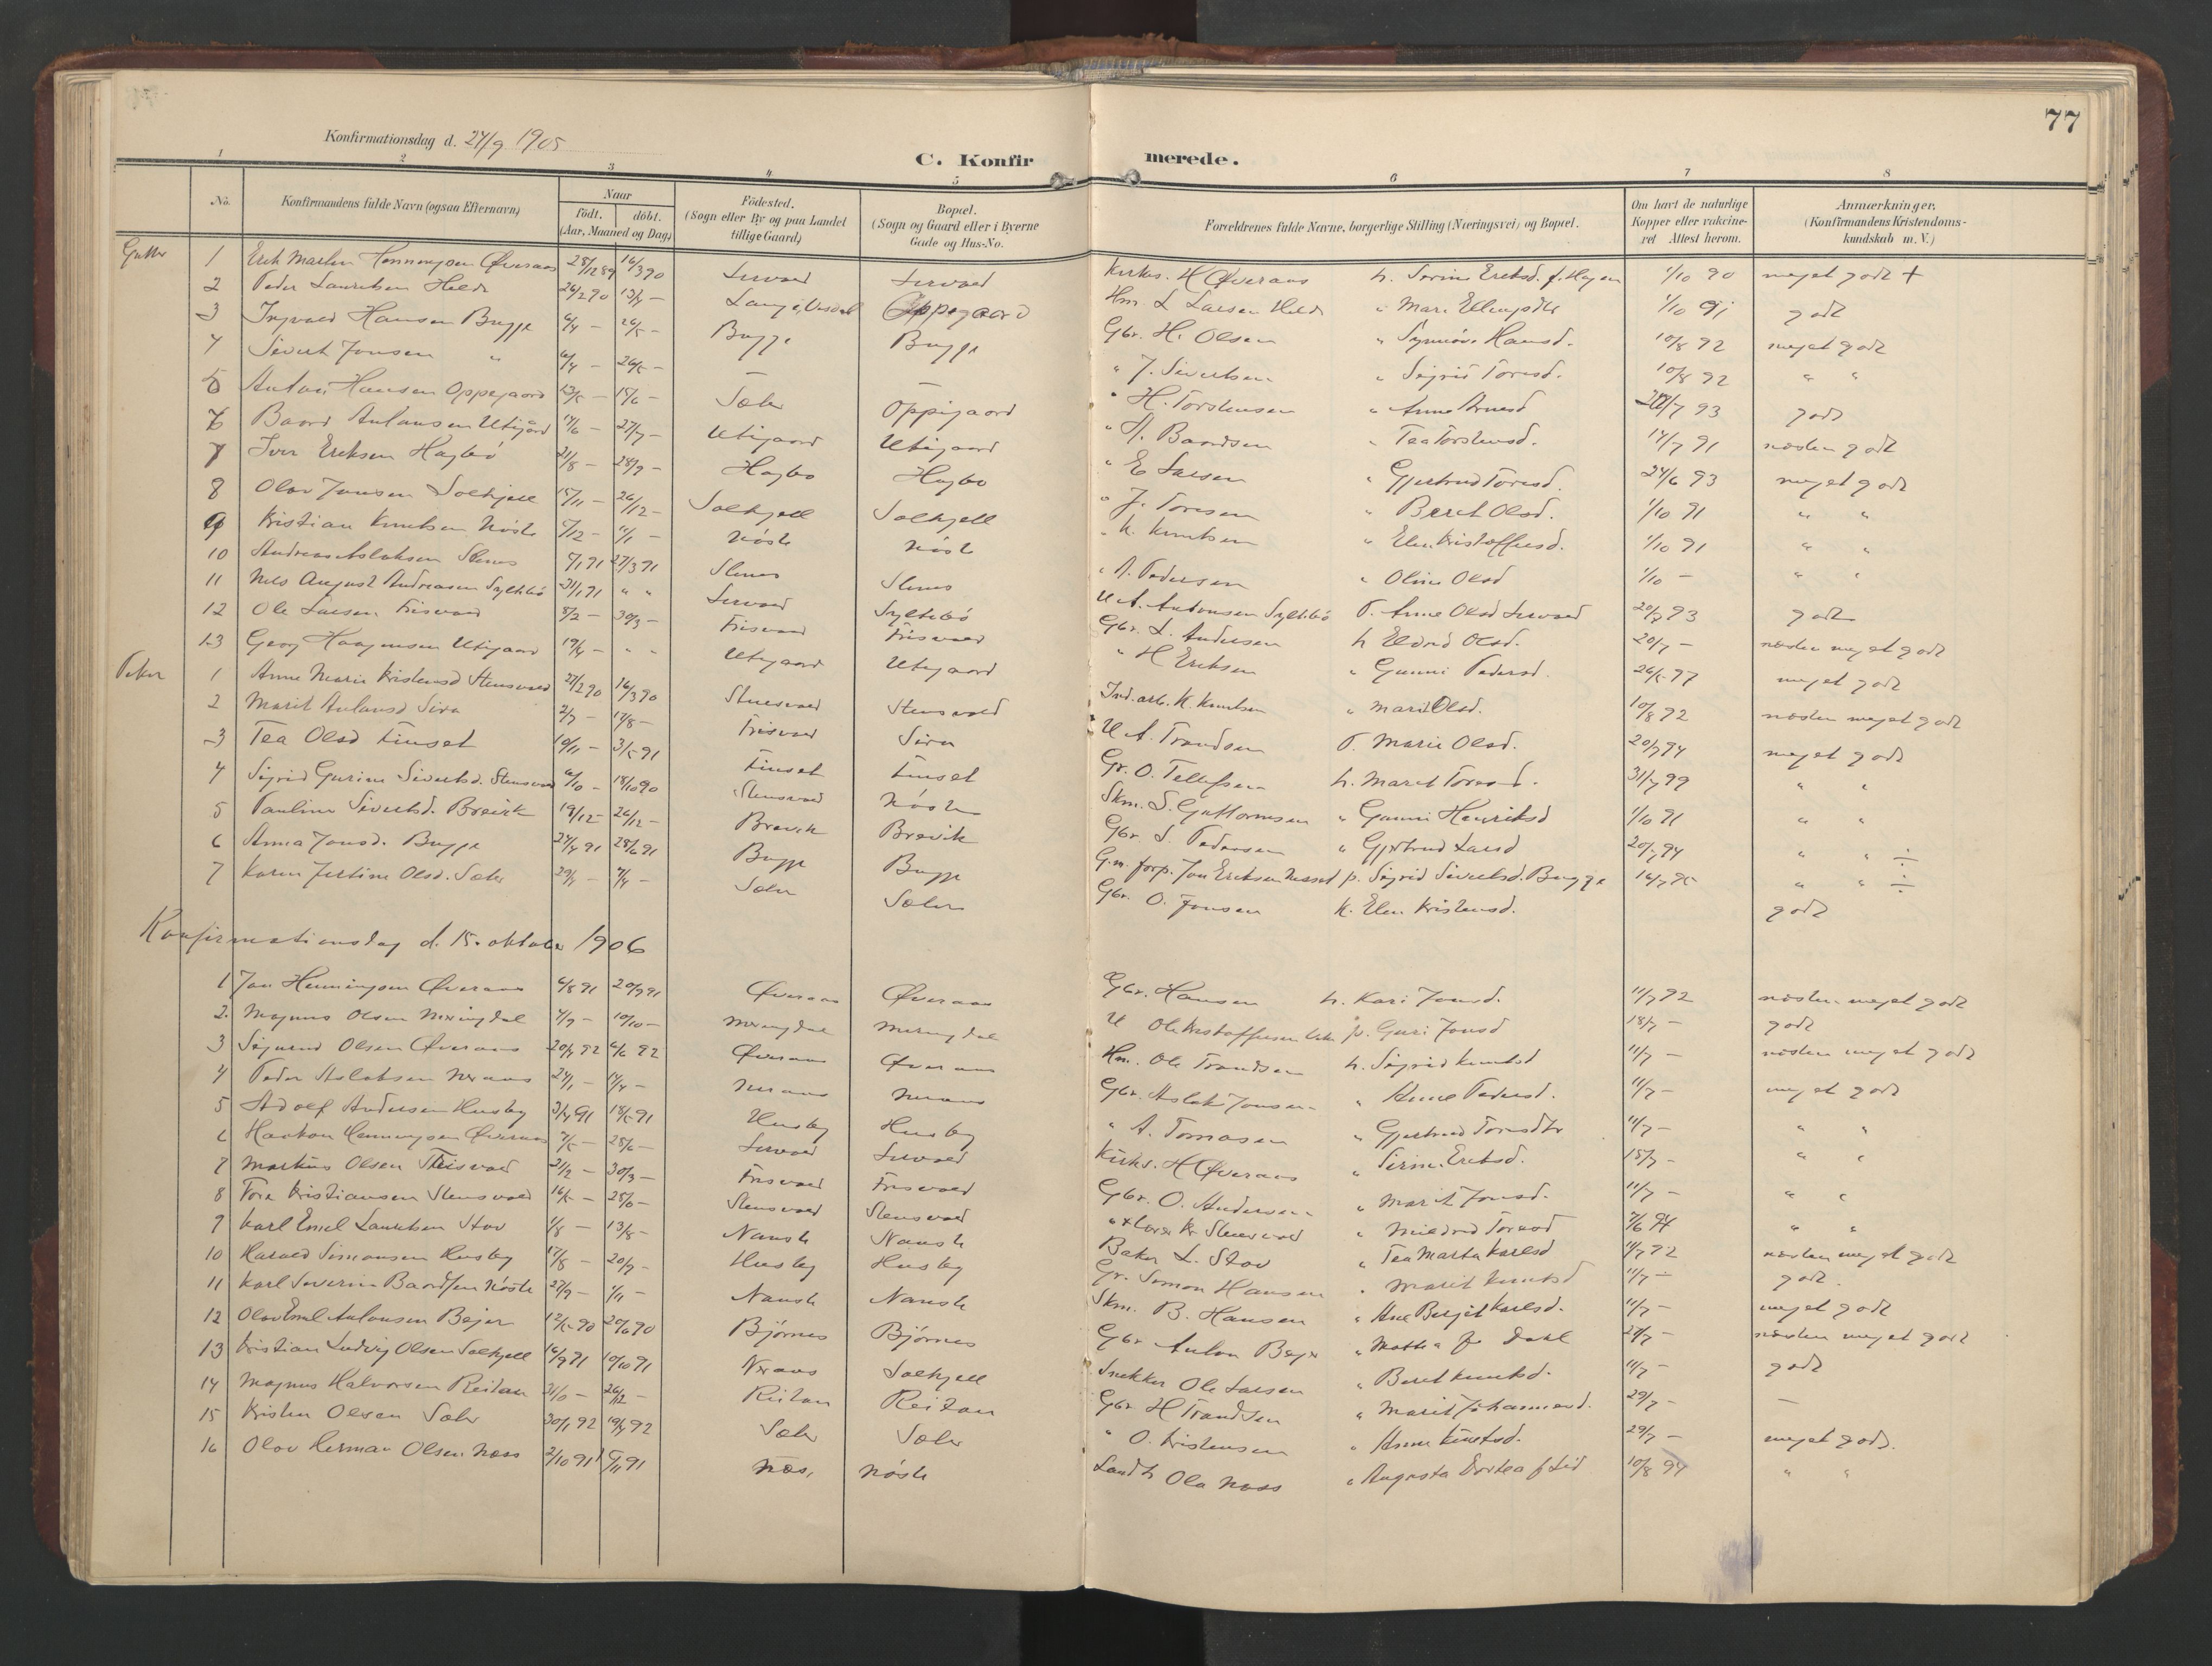 77
Konfirmationsdag d. 24/9 1905
C. Konfirmerede.
1 2 3 4 5 6 7 8
No. Konfirmandens fulde Navn (ogsaa Efternavn) Naar født. døbt. (Aar, Maaned og Dag) Födested. (Sogn eller By og paa Landet tillige Gaard) Bopæl. (Sogn og Gaard eller i Byerne Gade og Hus-No. Forældrenes fulde Navne, borgerlige Stilling (Næringsvei) og Bopæl. Om havt de naturlige Kopper eller vakcineret Attest herom. Anmærkninger. (Konfirmandens Kristendomskundskab m. V.)
Gutter 1 Erik Martin Henningsen Øveraas 28/12 89 16/3 90 Kirkes. H Øveraas h. Serine Eriksd. f. Hagen 1/10 90 meget godt +
2 Peder Lauritsen Helde 26/2 90 13/4 — Oppegaard Hm. L Larsen Helde " Mari 1/10 91 godt
3 Ingvald Hansen Bugge 6/4 — 26/5 — Bugge Bugge Gbr. H. Olsen " Synnöve Hansd. 10/8 92 meget godt
4 Sivert Jonsen " 6/4 — 26/5 — — — " J. Sivertsen " Sigrid Toresd. 10/8 92 " "
5 Anton Hansen Oppegaard 23/5 — 15/6 — Sæter Oppigaard " H. Torstensen " Anne Arnesd 93 godt
6 Baard Antonsen Utigård 14/6 — 27/7 — Utigaard Utigaard " A. Baardsen " Tea Torstensd. 14/7 91 næsten godt
7 Iver Eriksen Hagbö 21/8 — 28/9 — Hagbö Hagbö " E Larsen " Gjertrud Toresd. 24/6 93 meget godt
8 Olav Jonsen Solkjell 15/11 — 26/12 — Solkjell Solkjell " J. Toresen " Beret Olsd. 1/10 91 " "
9 Kristian Knutsen Nöste 5/12 — 1/1 — Nöste Nöste " K. Knutsen " Elen Kristoffersd. 1/10 91 " "
10 Andreas Aslaksen Stenes 5/1 91 27/3 91 Stenes Stenes " A. Pedersen " Oline Olsd 1/10 — " "
11 Nels August Andreasen Syltebö 31/1 91 " " Syltebö U A. Antonsen Syltebö P. Anne Olsd 20/7 93 godt
12 Ole Larsen Frisvaad 8/2 — 30/3 — Frisvaad Frisvaad Gbr. L. Andersen h Eldrid Olsd. 20/7 — næsten meget godt
13 Georg Haagensen Utigaard 19/4 — " " Utigaard Utigaard " H Eriksen " Gunni Pedersd. 26/5 97 meget godt
Piker 1 Anne Marie Kristensd Stensvaad 27/2 90 16/3 90 Stensvaad Stensvaad Ind.arb. K. Knutsen " Marit Olsd. 10/8 92 næsten meget godt
2 Marit Antonsd Sira 2/7 — 17/8 — Frisvaad Sira U A. Trondsen P. Marie Olsd. 20/7 94 meget godt
3 Tea Olsd Finset 19/11 — 3/5 91 Finset Finset Gr. O. Tellefsen h. Marit Toresd. 31/7 99 " "
4 Sigrid Gurine Sivertsd. Stensvaad 6/10 — 18/10 90 Stensvaad Nöste Skm. S. Guttormsen " Gunni Henriksd 1/10 91 " "
5 Pauline Sivertsd. Brevik 19/12 — 26/12 — Brevik Brevik Gbr. S. Pedersen " Gjertrud Larsd 20/7 94 " " ÷
6 Anna Jonsd. Bugge 24/4 91 28/6 91 Bugge Bugge G.m. forp. Jon Eriksen Nesset p. Sigrid Sivertsd. Bugge 14/7 95 " " ÷
7 Karen Jertine Olsd. Sæter 29/1 — 4/4 — Sæter Sæter Gbr. O. Jonsen K. Elen Kristensd. godt
Konfirmationsdag d. 15. oktober 1906
1 Jon Henningsen Øveraas 6/8 91 20/9 91 Øveraas Øveraas Gbr. Hansen h. Kari Jonsd. 11/7 92 næsten meget godt
2. Magnus Olsen Meringdal 4/9 — 10/10 — Meringdal Meringdal U Ole Kristoffersen p. Guri Jonsd 18/7 — godt
3 Sigurd Olsen Øveraas 20/4 92 6/6 92 Øveraas Øveraas Hm. Ole Trondsen h. Sigrid Knutsd 11/7 — næsten meget godt
4 Peder Aslaksen Neraas 24/1 — 14/4 — Neraas Neraas Gbr. Aslak Jonsen " Anne Pedersd. 11/7 — meget godt
5 Adolf Andersen Husby 3/4 91 18/5 91 Husby Husby " A. Tomasen " Gjertrud Toresdtr 11/7 — " "
6 Haakon Henningsen Øveraas 4/5 — 28/6 — Kirkes. H Øveraas " Serine Eriksd. 18/7 — " "
7 Markus Olsen Frisvaad 21/2 — 30/3 — Frisvaad Frisvaad Gbr. O. Andersen " Marit Jonsd. 11/7 — " "
8 Tore Kristiansen Stensvaad 16/5 — 28/6 — Stensvaad Stensvaad " Mildrid Toresd 7/6 94 " "
9 Karl Emil Lauritsen Stov 1/8 — 13/8 — Nauste Nauste Baker L. Stov " Tea Marta Karlsd 11/7 92 næsten meget godt
10 Harald Simonsen Husby 17/8 — 20/9 — Husby Husby Gr. Simon Hansen " Marit Knutsd 11/7 — godt.
11 Karl Severin Baardsen Nöste 27/9 — 1/11 — Nauste Nauste Skm. B. Hansen " Ane Bergit Karlsd. 11/7 — meget godt
12 Olav Emil Antonsen Bejer 12/5 90 29/6 90 Björnes Björnes Gbr Anton Bejer " Mattea f. Dahl 27/7 — næsten meget godt
13 Kristian Ludvig Olsen Solkjell 16/9 91 10/10 91 Neraas Solkjell Snekker Ole Larsen " Beret Knutsd. 11/7 — godt
14 Magnus Halvorsen Reitan 31/10 — 26/12 — Reitan Reitan Gbr H Trondsen " Marit Johannesd. 29/7 — —
15 Kristen Olsen Sæter 30/1 92 19/4 92 Sæter Sæter " O. Kristensen " Anne Knutsd. 29/7 — meget godt.
16 Olav Herman Olsen Næss 2/10 91 5/11 91 Næs, Nöste Landh Ole Næss " Augusta Dortea f Lid 10/8 94 " "